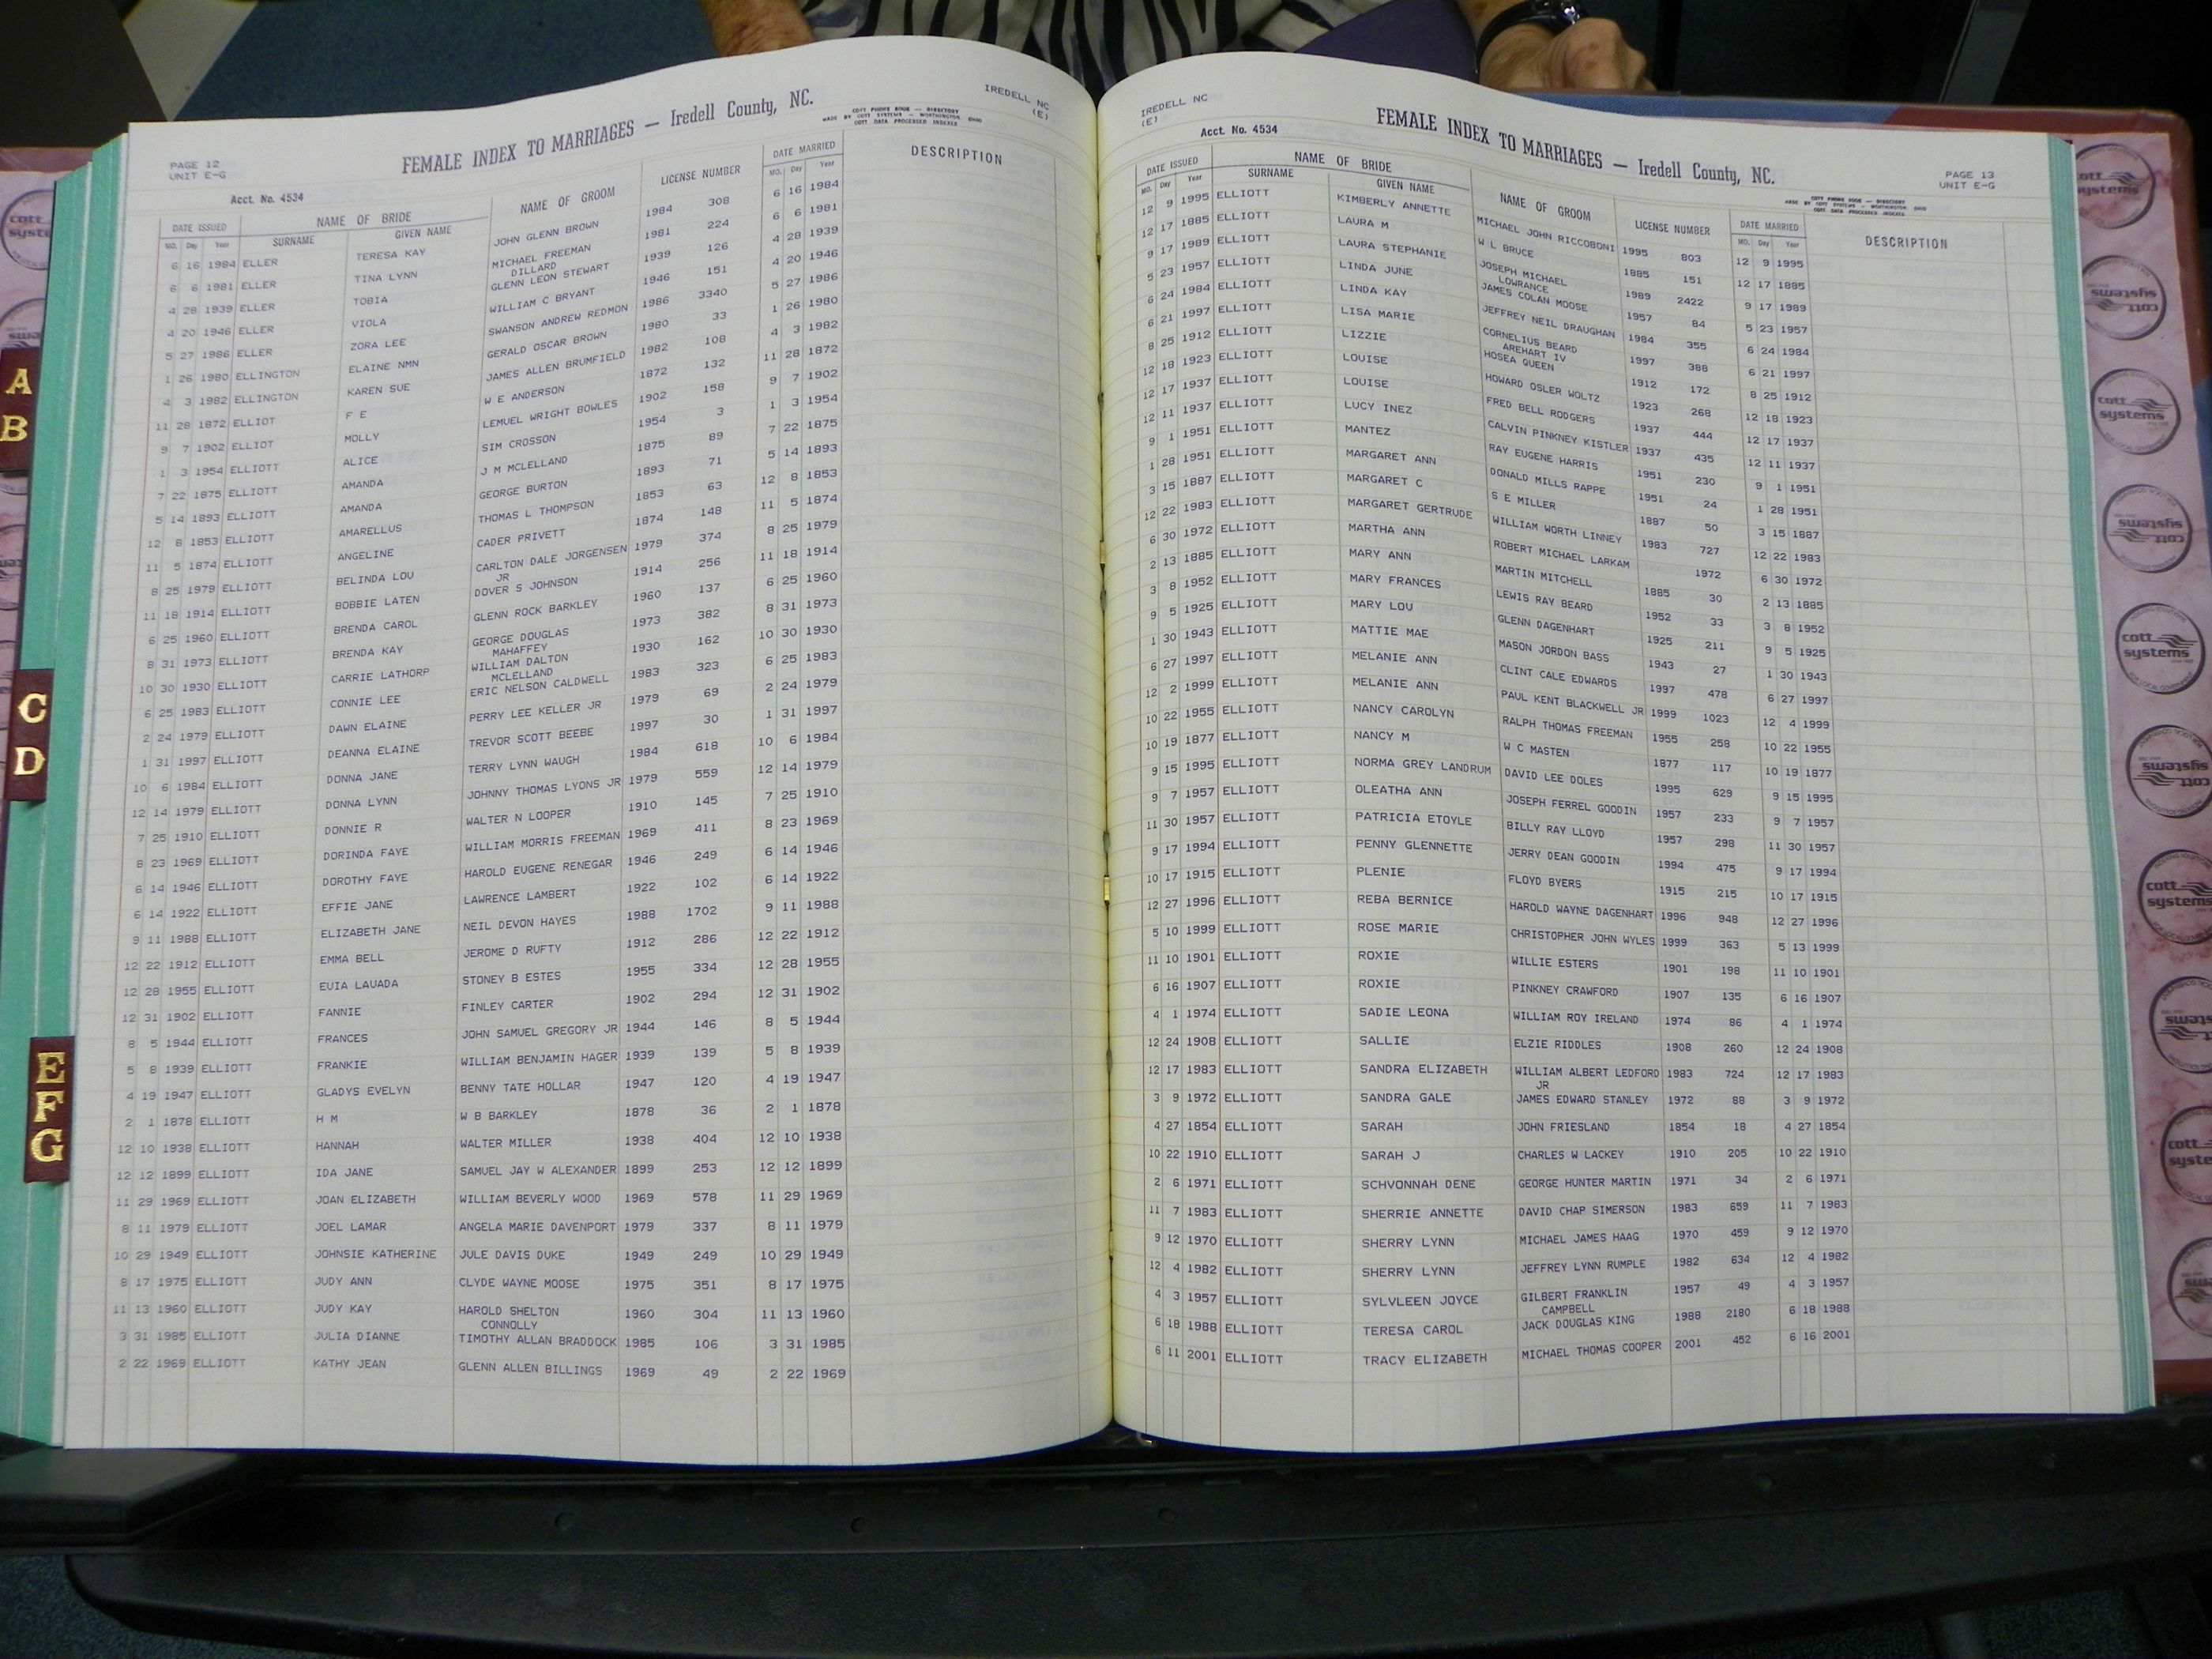 IREDELL NC
(E)
PAGE 12
UNIT E-G
FEMALE INDEX TO MARRIAGES — Iredell County, NC.
COTT PHONE BOOK — DIRECTORY
MADE BY COTT SYSTEMS — WORTHINGTON, OHIO
COTT DATA PROCESSED INDEXES
Acct. No. 4534
DATE ISSUED NAME OF BRIDE NAME OF GROOM LICENSE NUMBER DATE MARRIED DESCRIPTION
MO. Day Year SURNAME GIVEN NAME MO. Day Year
6 16 1984 ELLER TERESA KAY JOHN GLENN BROWN 1984 308 6 16 1984
6 6 1981 ELLER TINA LYNN MICHAEL FREEMAN 1981 224 6 6 1981
DILLARD
4 28 1939 ELLER TOBIA GLENN LEON STEWART 1939 126 4 28 1939
4 20 1946 ELLER VIOLA WILLIAM C BRYANT 1946 151 4 20 1946
5 27 1986 ELLER ZORA LEE SWANSON ANDREW REDMON 1986 3340 5 27 1986
1 26 1980 ELLINGTON ELAINE NMN GERALD OSCAR BROWN 1980 33 1 26 1980
4 3 1982 ELLINGTON KAREN SUE JAMES ALLEN BRUMFIELD 1982 108 4 3 1982
11 28 1872 ELLIOT F E W E ANDERSON 1872 132 11 28 1872
9 7 1902 ELLIOT MOLLY LEMUEL WRIGHT BOWLES 1902 158 9 7 1902
1 3 1954 ELLIOTT ALICE SIM CROSSON 1954 3 1 3 1954
7 22 1875 ELLIOTT AMANDA J M MCLELLAND 1875 89 7 22 1875
5 14 1893 ELLIOTT AMANDA GEORGE BURTON 1893 71 5 14 1893
12 8 1853 ELLIOTT AMARELLUS THOMAS L THOMPSON 1853 63 12 8 1853
11 5 1874 ELLIOTT ANGELINE CADER PRIVETT 1874 148 11 5 1874
8 25 1979 ELLIOTT BELINDA LOU CARLTON DALE JORGENSEN 1979 374 8 25 1979
JR
11 18 1914 ELLIOTT BOBBIE LATEN DOVER S JOHNSON 1914 256 11 18 1914
6 25 1960 ELLIOTT BRENDA CAROL GLENN ROCK BARKLEY 1960 137 6 25 1960
8 31 1973 ELLIOTT BRENDA KAY GEORGE DOUGLAS 1973 382 8 31 1973
MAHAFFEY
10 30 1930 ELLIOTT CARRIE LATHORP WILLIAM DALTON 1930 162 10 30 1930
MCLELLAND
6 25 1983 ELLIOTT CONNIE LEE ERIC NELSON CALDWELL 1983 323 6 25 1983
2 24 1979 ELLIOTT DAWN ELAINE PERRY LEE KELLER JR 1979 69 2 24 1979
1 31 1997 ELLIOTT DEANNA ELAINE TREVOR SCOTT BEEBE 1997 30 1 31 1997
10 6 1984 ELLIOTT DONNA JANE TERRY LYNN WAUGH 1984 618 10 6 1984
12 14 1979 ELLIOTT DONNA LYNN JOHNNY THOMAS LYONS JR 1979 559 12 14 1979
7 25 1910 ELLIOTT DONNIE R WALTER N LOOPER 1910 145 7 25 1910
8 23 1969 ELLIOTT DORINDA FAYE WILLIAM MORRIS FREEMAN 1969 411 8 23 1969
6 14 1946 ELLIOTT DOROTHY FAYE HAROLD EUGENE RENEGAR 1946 249 6 14 1946
6 14 1922 ELLIOTT EFFIE JANE LAWRENCE LAMBERT 1922 102 6 14 1922
9 11 1988 ELLIOTT ELIZABETH JANE NEIL DEVON HAYES 1988 1702 9 11 1988
12 22 1912 ELLIOTT EMMA BELL JEROME D RUFTY 1912 286 12 22 1912
12 28 1955 ELLIOTT EUIA LAUADA STONEY B ESTES 1955 334 12 28 1955
12 31 1902 ELLIOTT FANNIE FINLEY CARTER 1902 294 12 31 1902
8 5 1944 ELLIOTT FRANCES JOHN SAMUEL GREGORY JR 1944 146 8 5 1944
5 8 1939 ELLIOTT FRANKIE WILLIAM BENJAMIN HAGER 1939 139 5 8 1939
4 19 1947 ELLIOTT GLADYS EVELYN BENNY TATE HOLLAR 1947 120 4 19 1947
2 1 1878 ELLIOTT H M W B BARKLEY 1878 36 2 1 1878
12 10 1938 ELLIOTT HANNAH WALTER MILLER 1938 404 12 10 1938
12 12 1899 ELLIOTT IDA JANE SAMUEL JAY W ALEXANDER 1899 253 12 12 1899
11 29 1969 ELLIOTT JOAN ELIZABETH WILLIAM BEVERLY WOOD 1969 578 11 29 1969
8 11 1979 ELLIOTT JOEL LAMAR ANGELA MARIE DAVENPORT 1979 337 8 11 1979
10 29 1949 ELLIOTT JOHNSIE KATHERINE JULE DAVIS DUKE 1949 249 10 29 1949
8 17 1975 ELLIOTT JUDY ANN CLYDE WAYNE MOOSE 1975 351 8 17 1975
11 13 1960 ELLIOTT JUDY KAY HAROLD SHELTON 1960 304 11 13 1960
CONNOLLY
3 31 1985 ELLIOTT JULIA DIANNE TIMOTHY ALLAN BRADDOCK 1985 106 3 31 1985
2 22 1969 ELLIOTT KATHY JEAN GLENN ALLEN BILLINGS 1969 49 2 22 1969
IREDELL NC
(E)
Acct. No. 4534
FEMALE INDEX TO MARRIAGES — Iredell County, NC.
PAGE 13
UNIT E-G
COTT PHONE BOOK — DIRECTORY
MADE BY COTT SYSTEMS — WORTHINGTON, OHIO
COTT DATA PROCESSED INDEXES
DATE ISSUED NAME OF BRIDE NAME OF GROOM LICENSE NUMBER DATE MARRIED DESCRIPTION
MO. Day Year SURNAME GIVEN NAME MO. Day Year
12 9 1995 ELLIOTT KIMBERLY ANNETTE MICHAEL JOHN RICCOBONI 1995 803 12 9 1995
12 17 1885 ELLIOTT LAURA M W L BRUCE 1885 151 12 17 1885
9 17 1989 ELLIOTT LAURA STEPHANIE JOSEPH MICHAEL 1989 2422 9 17 1989
LOWRANCE
5 23 1957 ELLIOTT LINDA JUNE JAMES COLAN MOOSE 1957 84 5 23 1957
6 24 1984 ELLIOTT LINDA KAY JEFFREY NEIL DRAUGHAN 1984 355 6 24 1984
6 21 1997 ELLIOTT LISA MARIE CORNELIUS BEARD 1997 388 6 21 1997
AREHART IV
8 25 1912 ELLIOTT LIZZIE HOSEA QUEEN 1912 172 8 25 1912
12 18 1923 ELLIOTT LOUISE HOWARD OSLER WOLTZ 1923 268 12 18 1923
12 17 1937 ELLIOTT LOUISE FRED BELL RODGERS 1937 444 12 17 1937
12 11 1937 ELLIOTT LUCY INEZ CALVIN PINKNEY KISTLER 1937 435 12 11 1937
9 1 1951 ELLIOTT MANTEZ RAY EUGENE HARRIS 1951 230 9 1 1951
1 28 1951 ELLIOTT MARGARET ANN DONALD MILLS RAPPE 1951 24 1 28 1951
3 15 1887 ELLIOTT MARGARET C S E MILLER 1887 50 3 15 1887
12 22 1983 ELLIOTT MARGARET GERTRUDE WILLIAM WORTH LINNEY 1983 727 12 22 1983
6 30 1972 ELLIOTT MARTHA ANN ROBERT MICHAEL LARKAM 1972 6 30 1972
2 13 1885 ELLIOTT MARY ANN MARTIN MITCHELL 1885 30 2 13 1885
3 8 1952 ELLIOTT MARY FRANCES LEWIS RAY BEARD 1952 33 3 8 1952
9 5 1925 ELLIOTT MARY LOU GLENN DAGENHART 1925 211 9 5 1925
1 30 1943 ELLIOTT MATTIE MAE MASON JORDON BASS 1943 27 1 30 1943
6 27 1997 ELLIOTT MELANIE ANN CLINT CALE EDWARDS 1997 478 6 27 1997
12 2 1999 ELLIOTT MELANIE ANN PAUL KENT BLACKWELL JR 1999 1023 12 4 1999
10 22 1955 ELLIOTT NANCY CAROLYN RALPH THOMAS FREEMAN 1955 258 10 22 1955
10 19 1877 ELLIOTT NANCY M W C MASTEN 1877 117 10 19 1877
9 15 1995 ELLIOTT NORMA GREY LANDRUM DAVID LEE DOLES 1995 629 9 15 1995
9 7 1957 ELLIOTT OLEATHA ANN JOSEPH FERREL GOODIN 1957 233 9 7 1957
11 30 1957 ELLIOTT PATRICIA ETOYLE BILLY RAY LLOYD 1957 298 11 30 1957
9 17 1994 ELLIOTT PENNY GLENNETTE JERRY DEAN GOODIN 1994 475 9 17 1994
10 17 1915 ELLIOTT PLENIE FLOYD BYERS 1915 215 10 17 1915
12 27 1996 ELLIOTT REBA BERNICE HAROLD WAYNE DAGENHART 1996 948 12 27 1996
5 10 1999 ELLIOTT ROSE MARIE CHRISTOPHER JOHN WYLES 1999 363 5 13 1999
11 10 1901 ELLIOTT ROXIE WILLIE ESTERS 1901 198 11 10 1901
6 16 1907 ELLIOTT ROXIE PINKNEY CRAWFORD 1907 135 6 16 1907
4 1 1974 ELLIOTT SADIE LEONA WILLIAM ROY IRELAND 1974 86 4 1 1974
12 24 1908 ELLIOTT SALLIE ELZIE RIDDLES 1908 260 12 24 1908
12 17 1983 ELLIOTT SANDRA ELIZABETH WILLIAM ALBERT LEDFORD 1983 724 12 17 1983
JR
3 9 1972 ELLIOTT SANDRA GALE JAMES EDWARD STANLEY 1972 88 3 9 1972
4 27 1854 ELLIOTT SARAH JOHN FRIESLAND 1854 18 4 27 1854
10 22 1910 ELLIOTT SARAH J CHARLES W LACKEY 1910 205 10 22 1910
2 6 1971 ELLIOTT SCHVONNAH DENE GEORGE HUNTER MARTIN 1971 34 2 6 1971
11 7 1983 ELLIOTT SHERRIE ANNETTE DAVID CHAP SIMERSON 1983 659 11 7 1983
9 12 1970 ELLIOTT SHERRY LYNN MICHAEL JAMES HAAG 1970 459 9 12 1970
12 4 1982 ELLIOTT SHERRY LYNN JEFFREY LYNN RUMPLE 1982 634 12 4 1982
4 3 1957 ELLIOTT SYLVLEEN JOYCE GILBERT FRANKLIN 1957 49 4 3 1957
CAMPBELL
6 18 1988 ELLIOTT TERESA CAROL JACK DOUGLAS KING 1988 2180 6 18 1988
6 11 2001 ELLIOTT TRACY ELIZABETH MICHAEL THOMAS COOPER 2001 452 6 16 2001
A
B
C
D
E
F
G
cott
systems
cott
systems
cott
systems